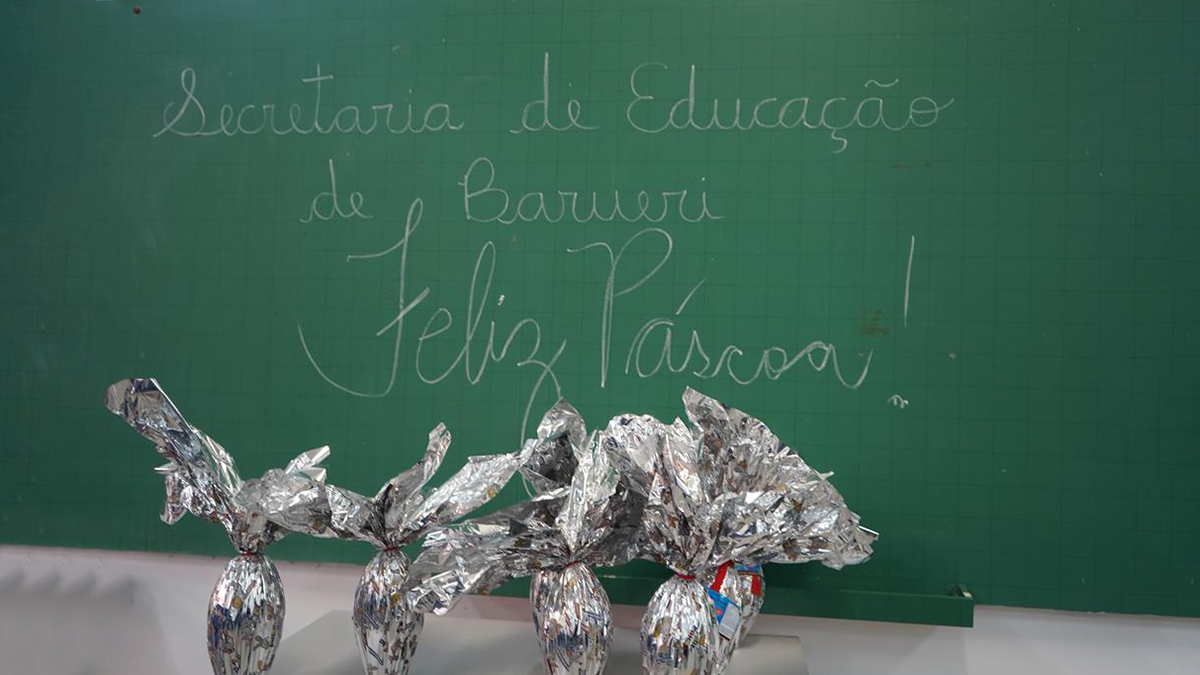 Secretaria de Educação
de Barueri
Feliz Páscoa!